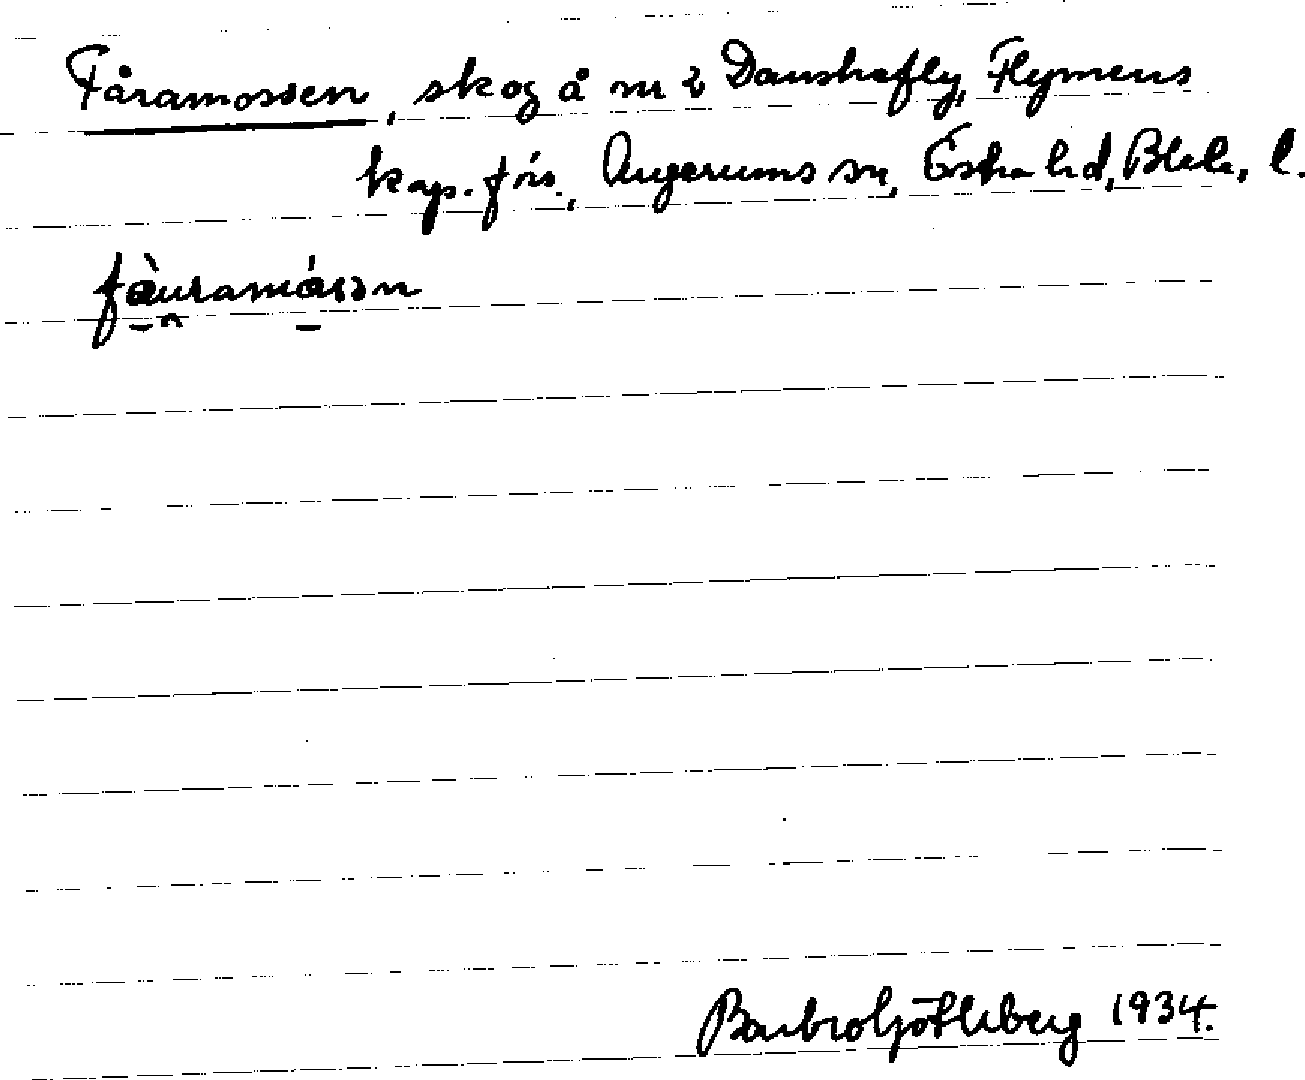 Fåramossen, skog å nr 2 Danskafly, Flymens
kap.förs., Augerums sn, Östra hd, Blek. l.
fàuramásən
Barbro Götleberg 1934.